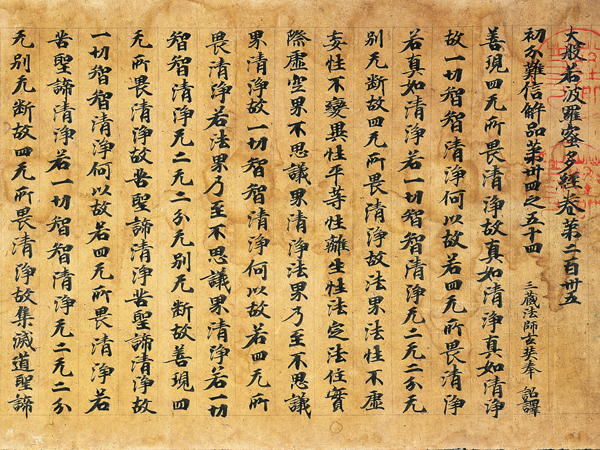 大般若波羅蜜多經卷第二百卅五
初分難信解品第卅四之五十四
三藏法師玄奘奉 詔譯
善現四无所畏清淨故真如清淨真如清淨
故一切智智清淨何以故若四无所畏清淨
若真如清淨若一切智智清淨无二无二分无
別无斷故四无所畏清淨故法界法性不虛
妄性不變異性平等性離生性法定法住實
際虛空界不思議界清淨法界乃至不思議
界清淨故一切智智清淨何以故若四无所
畏清淨若法界乃至不思議界清淨若一切
智智清淨无二无二分无別无斷故善現四
无所畏清淨故苦聖諦清淨苦聖諦清淨故
一切智智清淨何以故若四无所畏清淨若
苦聖諦清淨若一切智智清淨无二无二分
无別无斷故四无所畏清淨故集滅道聖諦